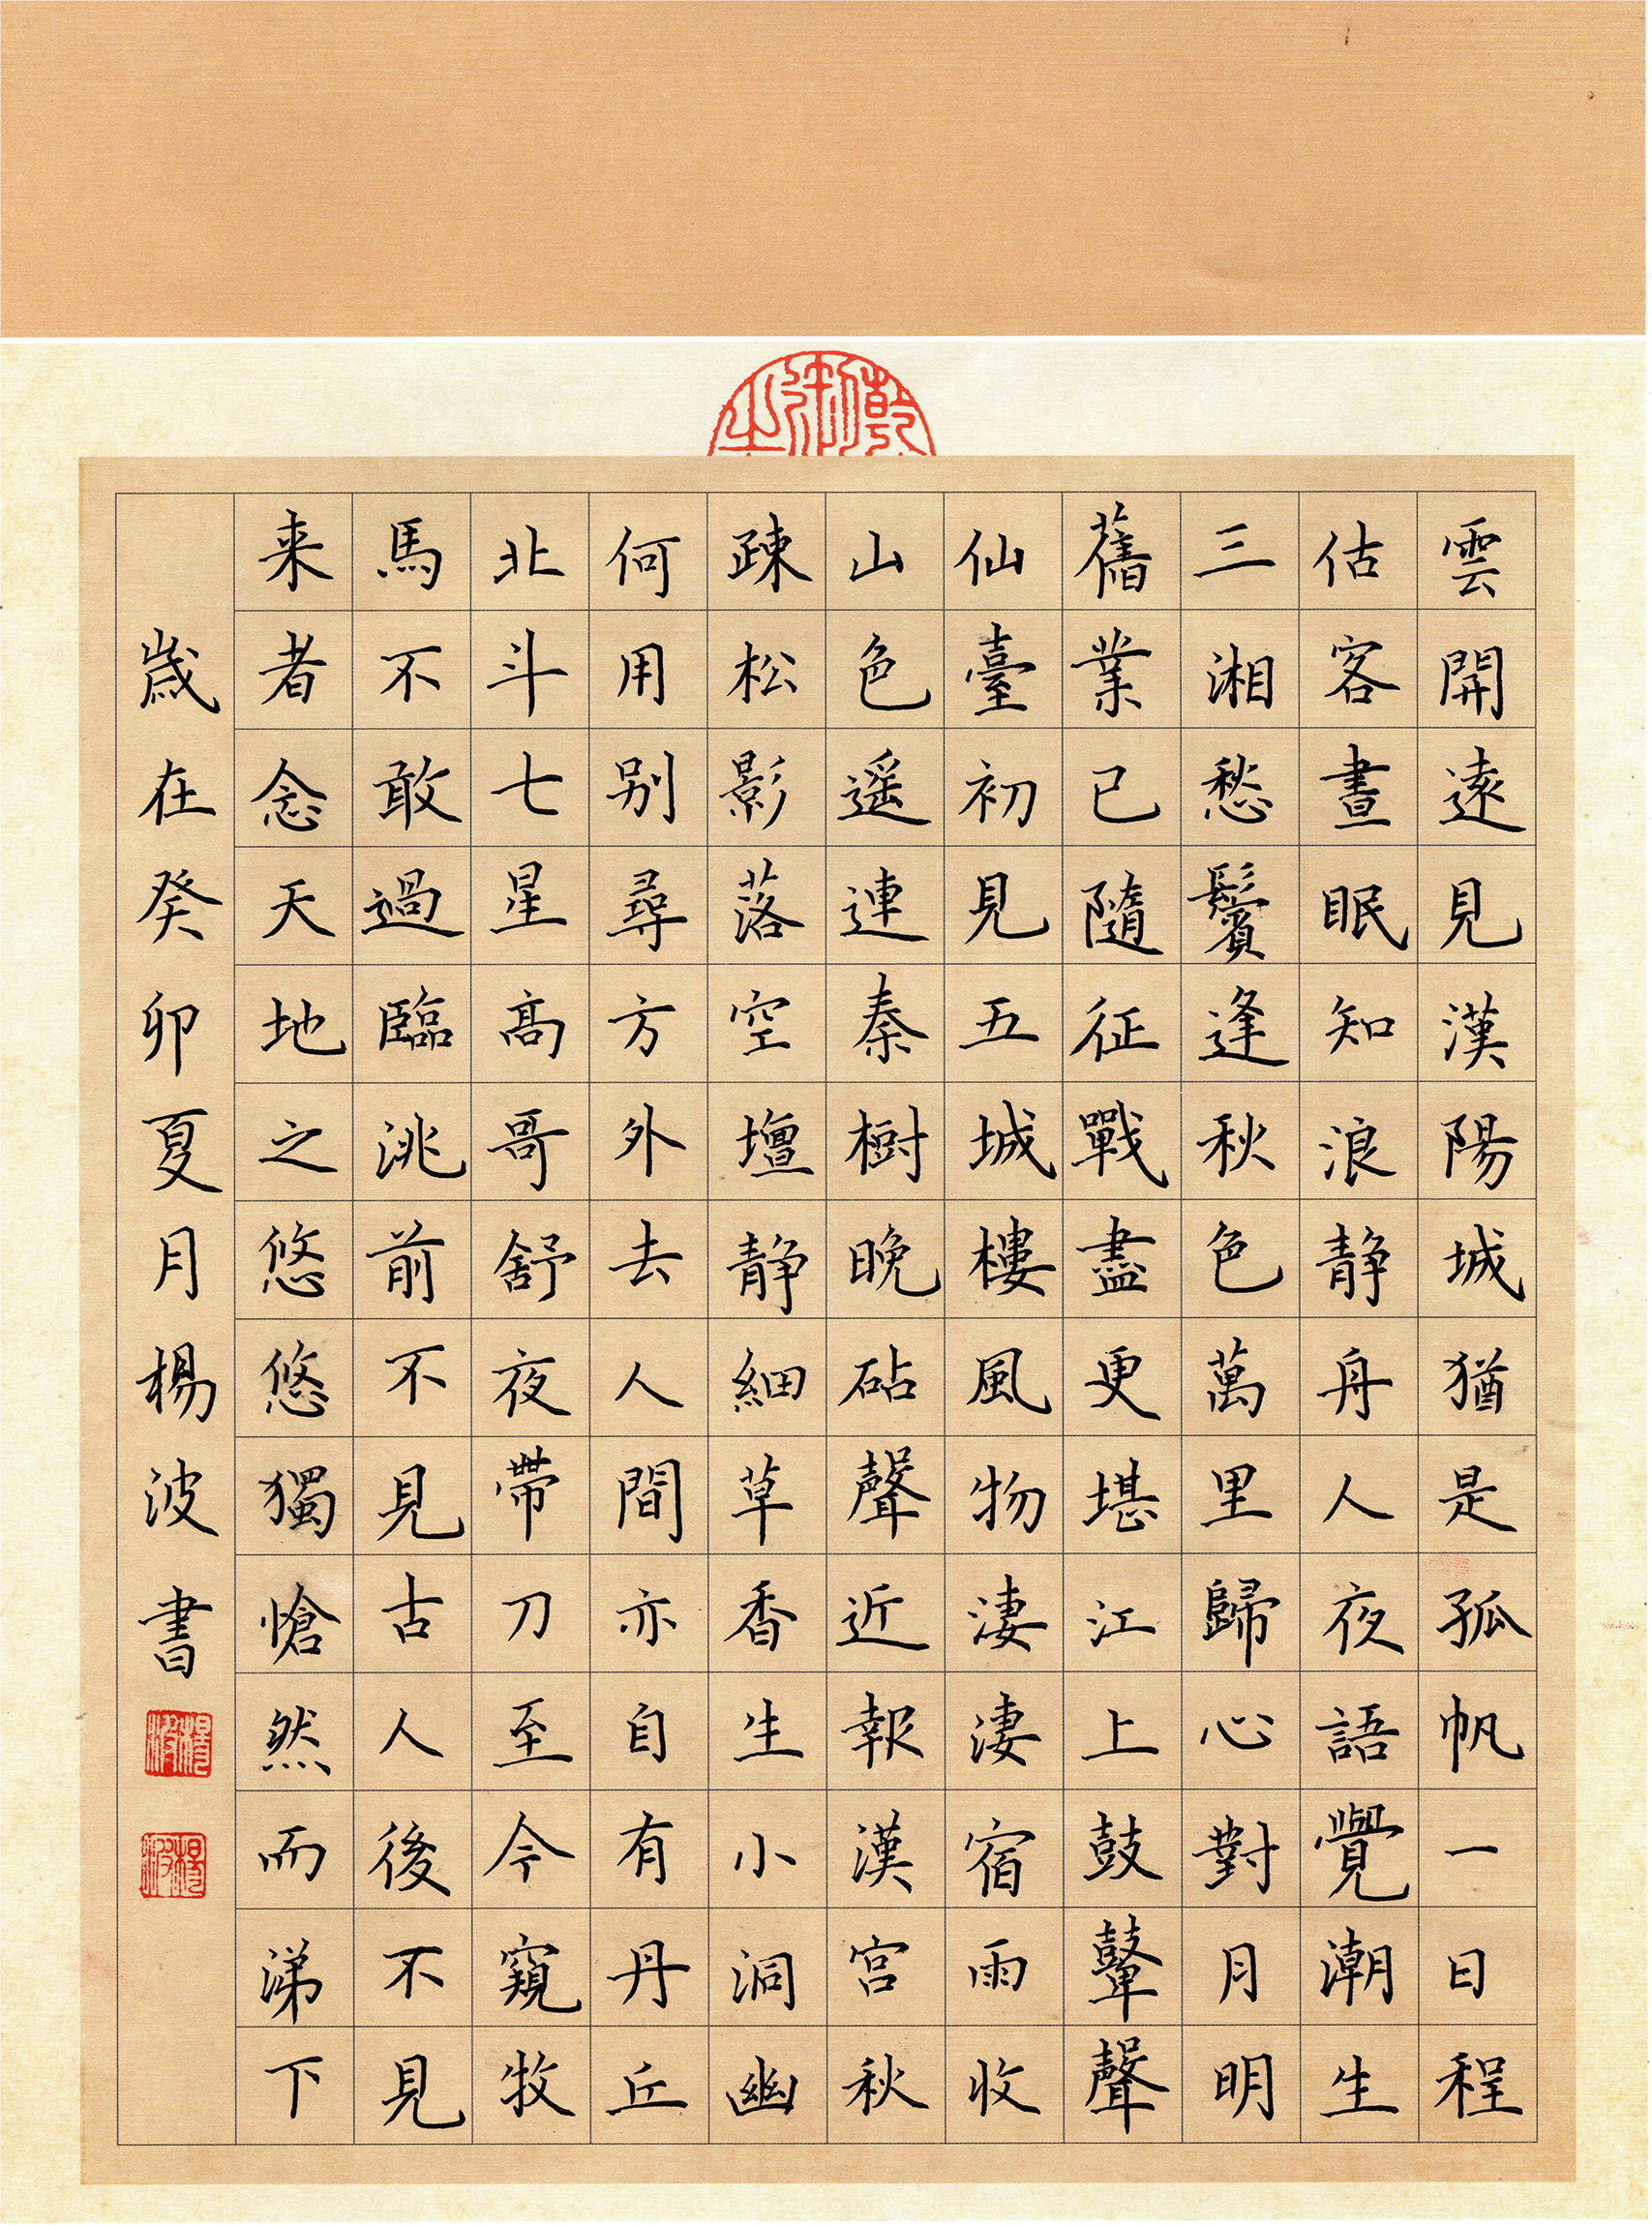 雲開遠見漢陽城猶是孤帆一日程
估客晝眠知浪静舟人夜語覺潮生
三湘愁鬢逢秋色萬里歸心對月明
舊業已隨征戰盡更堪江上鼓鼙聲
仙臺初見五城樓風物淒淒宿雨收
山色遥連秦樹晚砧聲近報漢宮秋
疎松影落空壇静細草香生小洞幽
何用别尋方外去人間亦自有丹丘
北斗七星高哥舒夜帶刀至今窺牧
馬不敢過臨洮前不見古人後不見
来者念天地之悠悠獨愴然而涕下
歲在癸卯夏月楊波書
楊波
楊波